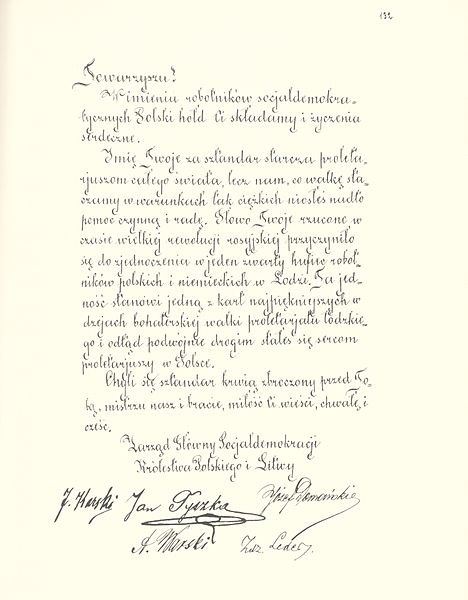 132
Towarzyszu!
W imieniu robotników socjaldemokra-
tycznych Polski hołd Ci składamy i życzenia
serdeczne.
Imię Twoje za sztandar starcza proleta-
rjuszom całego świata, lecz nam, co walkę sta-
czamy w warunkach tak ciężkich niosłeś nadto
pomoc czynną i radę. Słowo Twoje rzucone w
czasie wielkiej rewolucji rosyjskiej przyczyniło
się do zjednoczenia w jeden zwarty hufiec robot-
ników polskich i niemieckich w Łodzi. Ta jed-
ność stanowi jedną z kart najpiękniejszych w
dziejach bohaterskiej walki proletarjatu łódzkie-
go i odtąd podwójnie drogim stałeś się sercom
proletarjuszy w Polsce.
Chyli się sztandar krwią zbroczony przed To-
bą, mistrzu nasz i bracie, miłość Ci wieści, chwałę i
cześć.
Zarząd Główny Socjaldemokracji
Królestwa Polskiego i Litwy
J. Karski Jan Tyszka Józef Domański
A. Warski Zdz. Leder